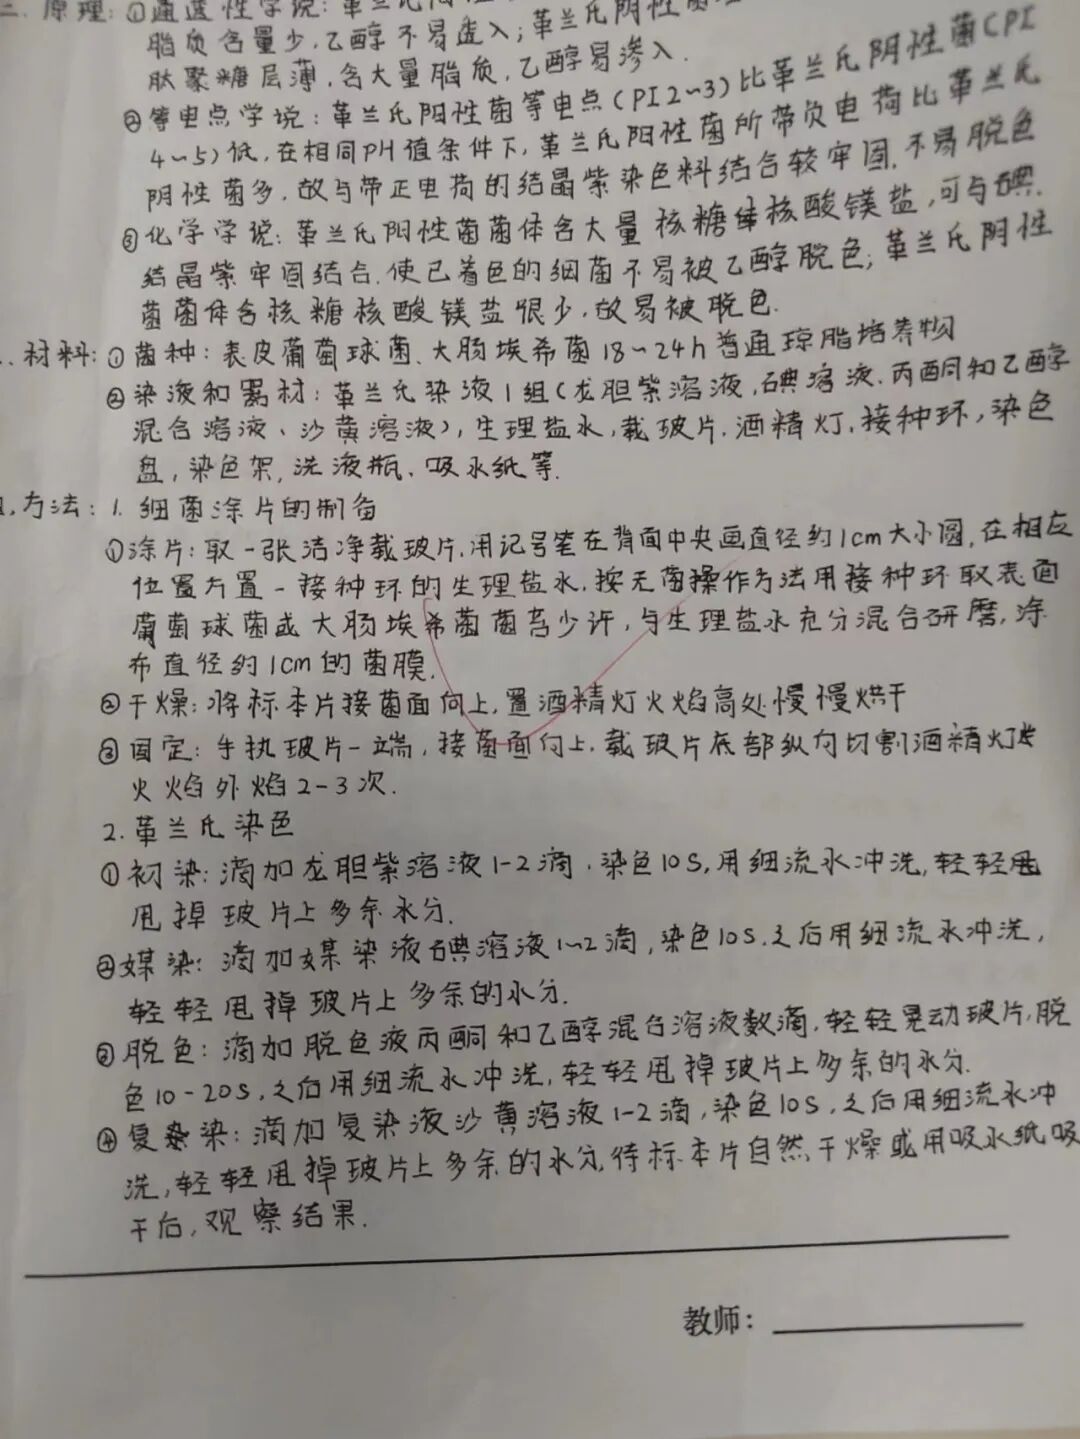 二. 原理: ①通透性学说: 革兰氏阳
脂质含量少, 乙醇不易虚入; 革兰氏阴性菌
肽聚糖层薄, 含大量脂质, 乙醇易渗入.
②等电点学说: 革兰氏阳性菌等电点(PI 2~3) 比革兰氏阴性菌(PI
4~5) 低, 在相同PH值条件下, 革兰氏阳性菌所带负电荷比革兰氏
阴性菌多, 故与带正电荷的结晶紫染色料结合较牢固, 不易脱色
③化学学说: 革兰氏阳性菌菌体含大量核糖体核酸镁盐, 可与碘.
结晶紫牢固结合, 使已着色的细菌不易被乙醇脱色; 革兰氏阴性
菌菌体含核糖核酸镁盐很少, 故易被脱色.
. 材料: ①菌种: 表皮葡萄球菌、大肠埃希菌18~24h普通琼脂培养物
②染液和器材: 革兰氏染液1组(龙胆紫溶液, 碘溶液、丙酮和乙醇
混合溶液、沙黄溶液), 生理盐水, 载玻片, 酒精灯, 接种环, 染色
盘, 染色架, 洗液瓶、吸水纸等.
. 方法: 1. 细菌涂片的制备
①涂片: 取一张洁净载玻片, 用记号笔在背面中央画直径约1cm大小圆, 在相应
位置方置一接种环的生理盐水, 按无菌操作方法用接种环取表面
葡萄球菌或大肠埃希菌菌苔少许, 与生理盐水充分混合研磨, 涂
布直径约1cm的菌膜.
②干燥: 将标本片接菌面向上, 置酒精灯火焰高处慢慢烘干
③固定: 手执玻片一端, 接菌面向上, 载玻片底部纵向切割酒精灯
火焰外焰2-3次.
2. 革兰氏染色
①初染: 滴加龙胆紫溶液1-2滴, 染色10S, 用细流水冲洗, 轻轻甩
甩掉玻片上多余水分.
②媒染: 滴加媒染液碘溶液1~2滴, 染色10S, 之后用细流水冲洗,
轻轻甩掉玻片上多余的水分.
③脱色: 滴加脱色液丙酮和乙醇混合溶液数滴, 轻轻晃动玻片, 脱
色10-20S, 之后用细流水冲洗, 轻轻甩掉玻片上多余的水分.
④复染: 滴加复染液沙黄溶液1-2滴, 染色10S, 之后用细流水冲
洗, 轻轻甩掉玻片上多余的水分, 待标本片自然干燥或用吸水纸吸
干后, 观察结果.
教师: